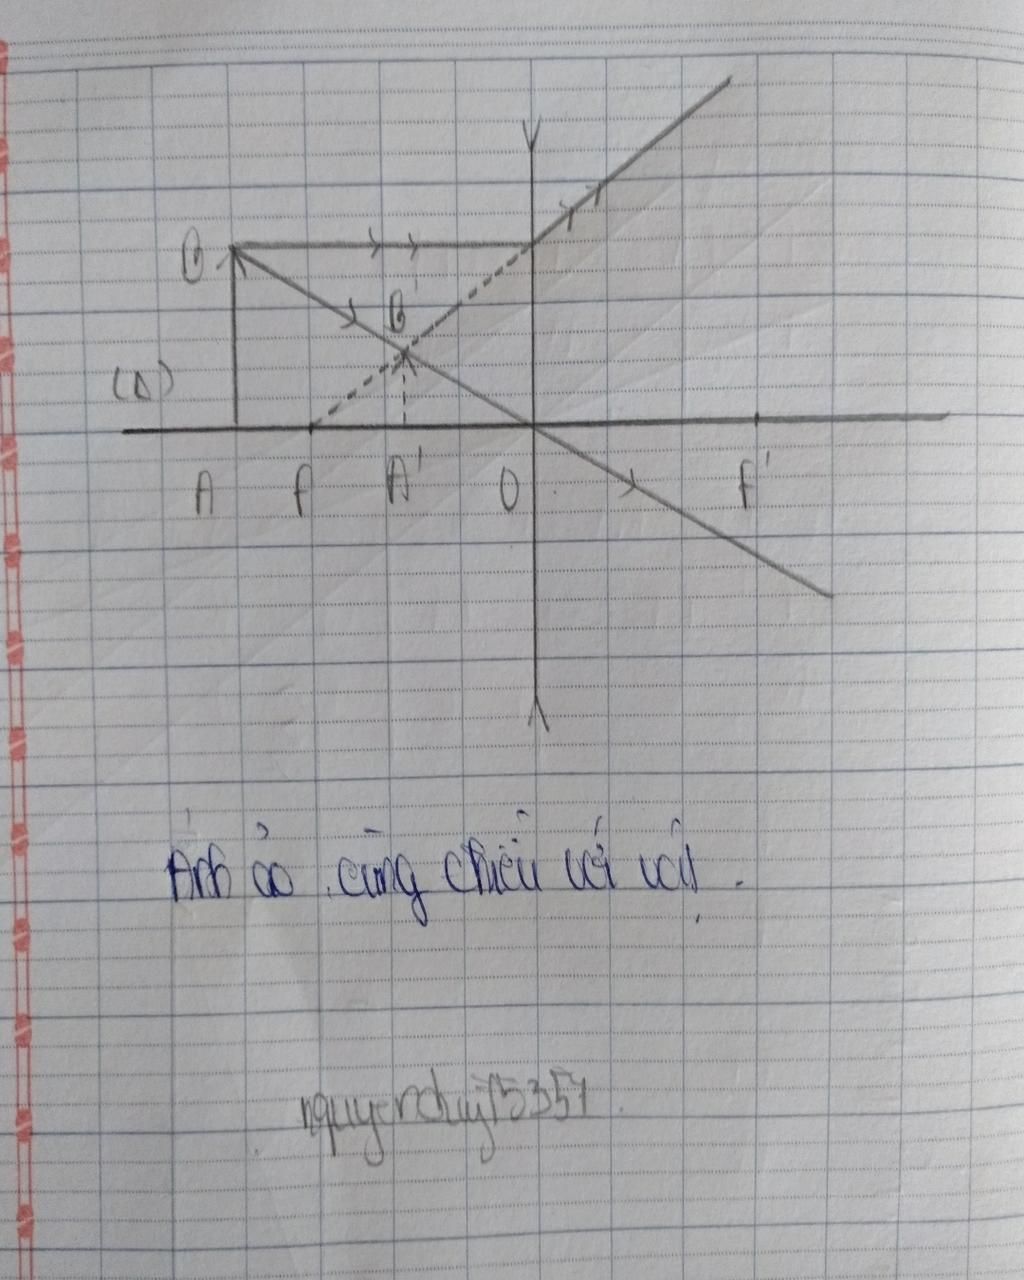 B
B'
(Δ)
A F A' O F'
Ảnh ảo cùng chiều với vật.
nguyenduy15357